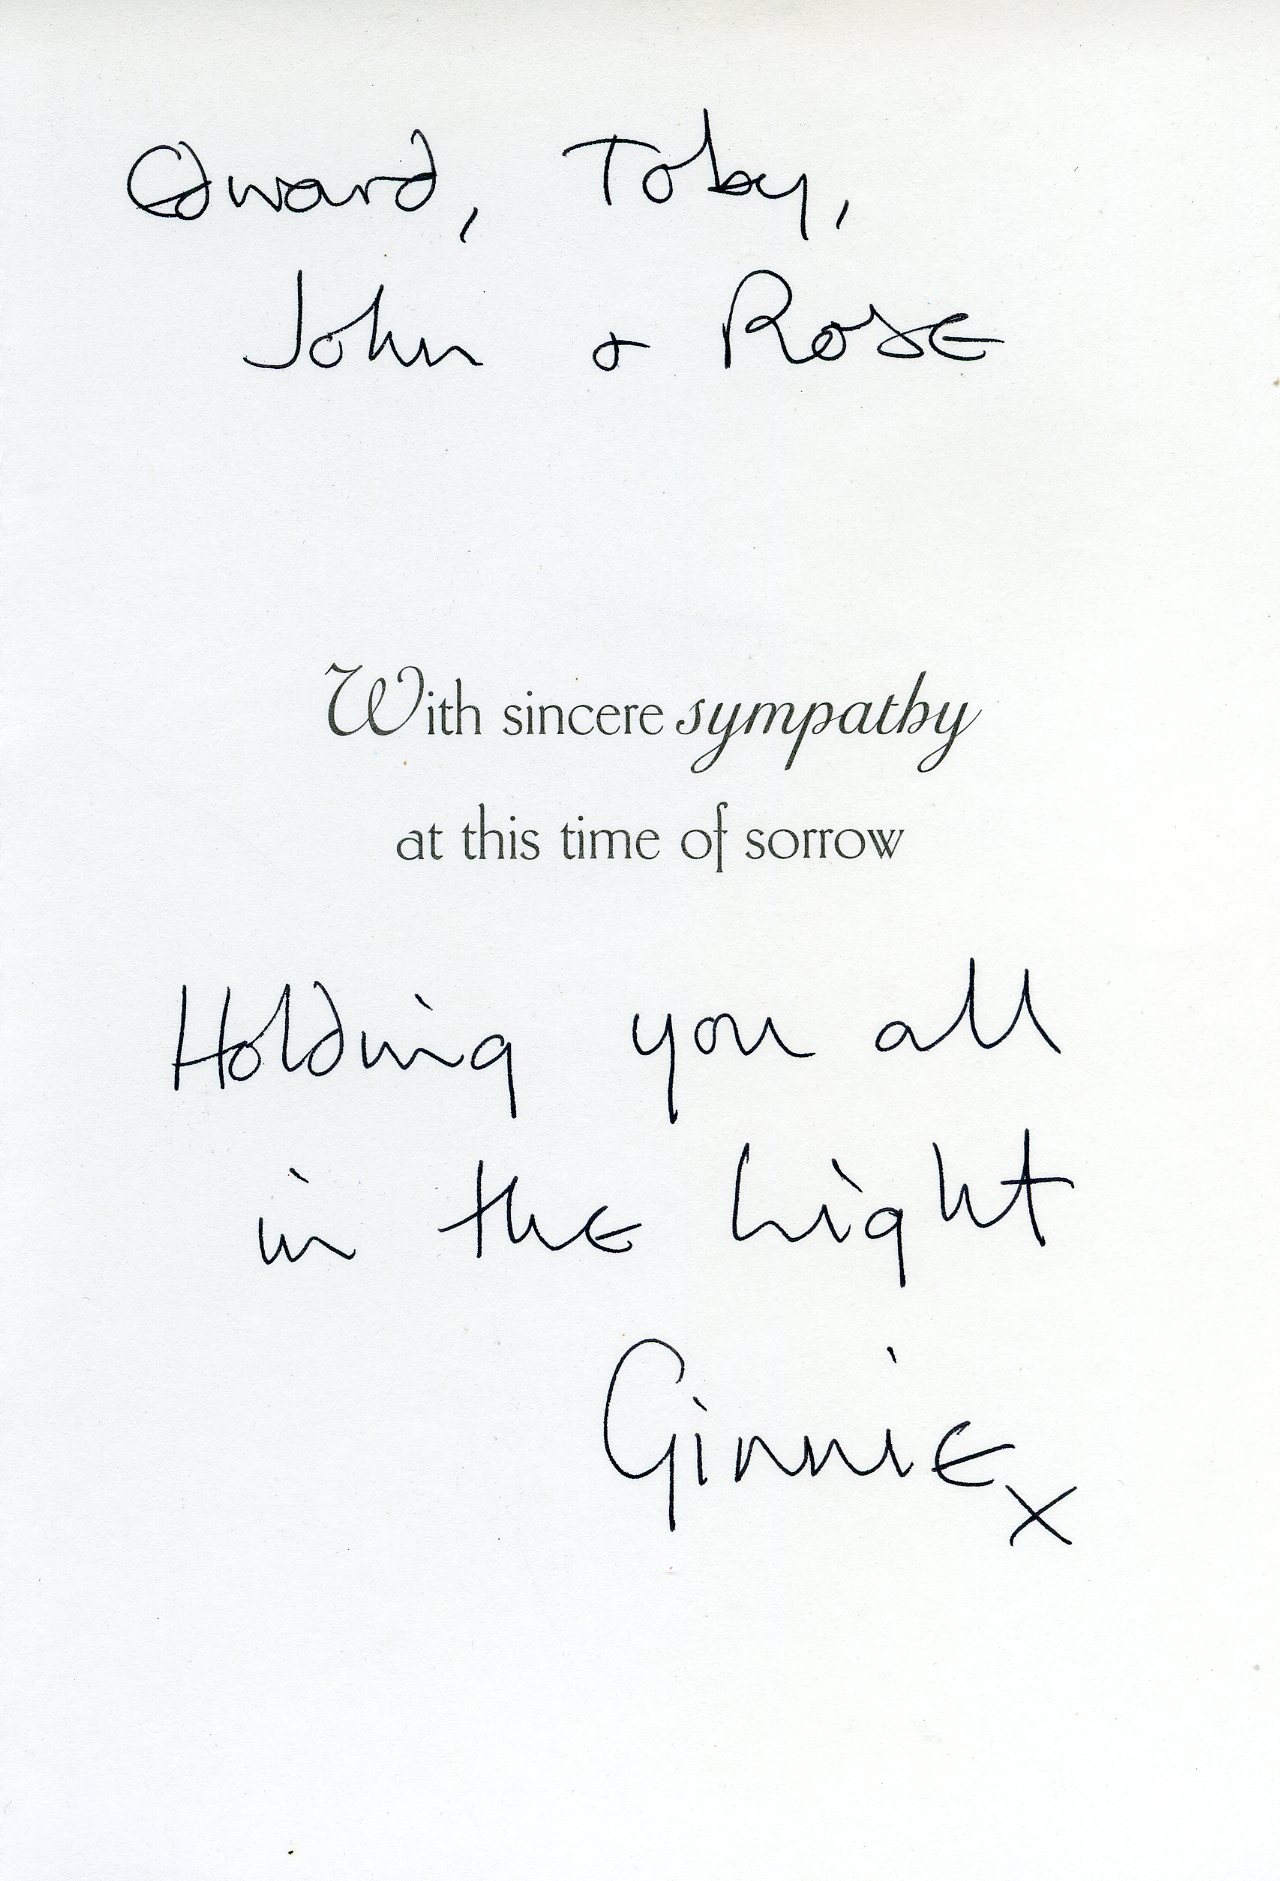 Edward, Toby,
John & Rose
With sincere sympathy
at this time of sorrow
Holding you all
in the Light
Ginnie x